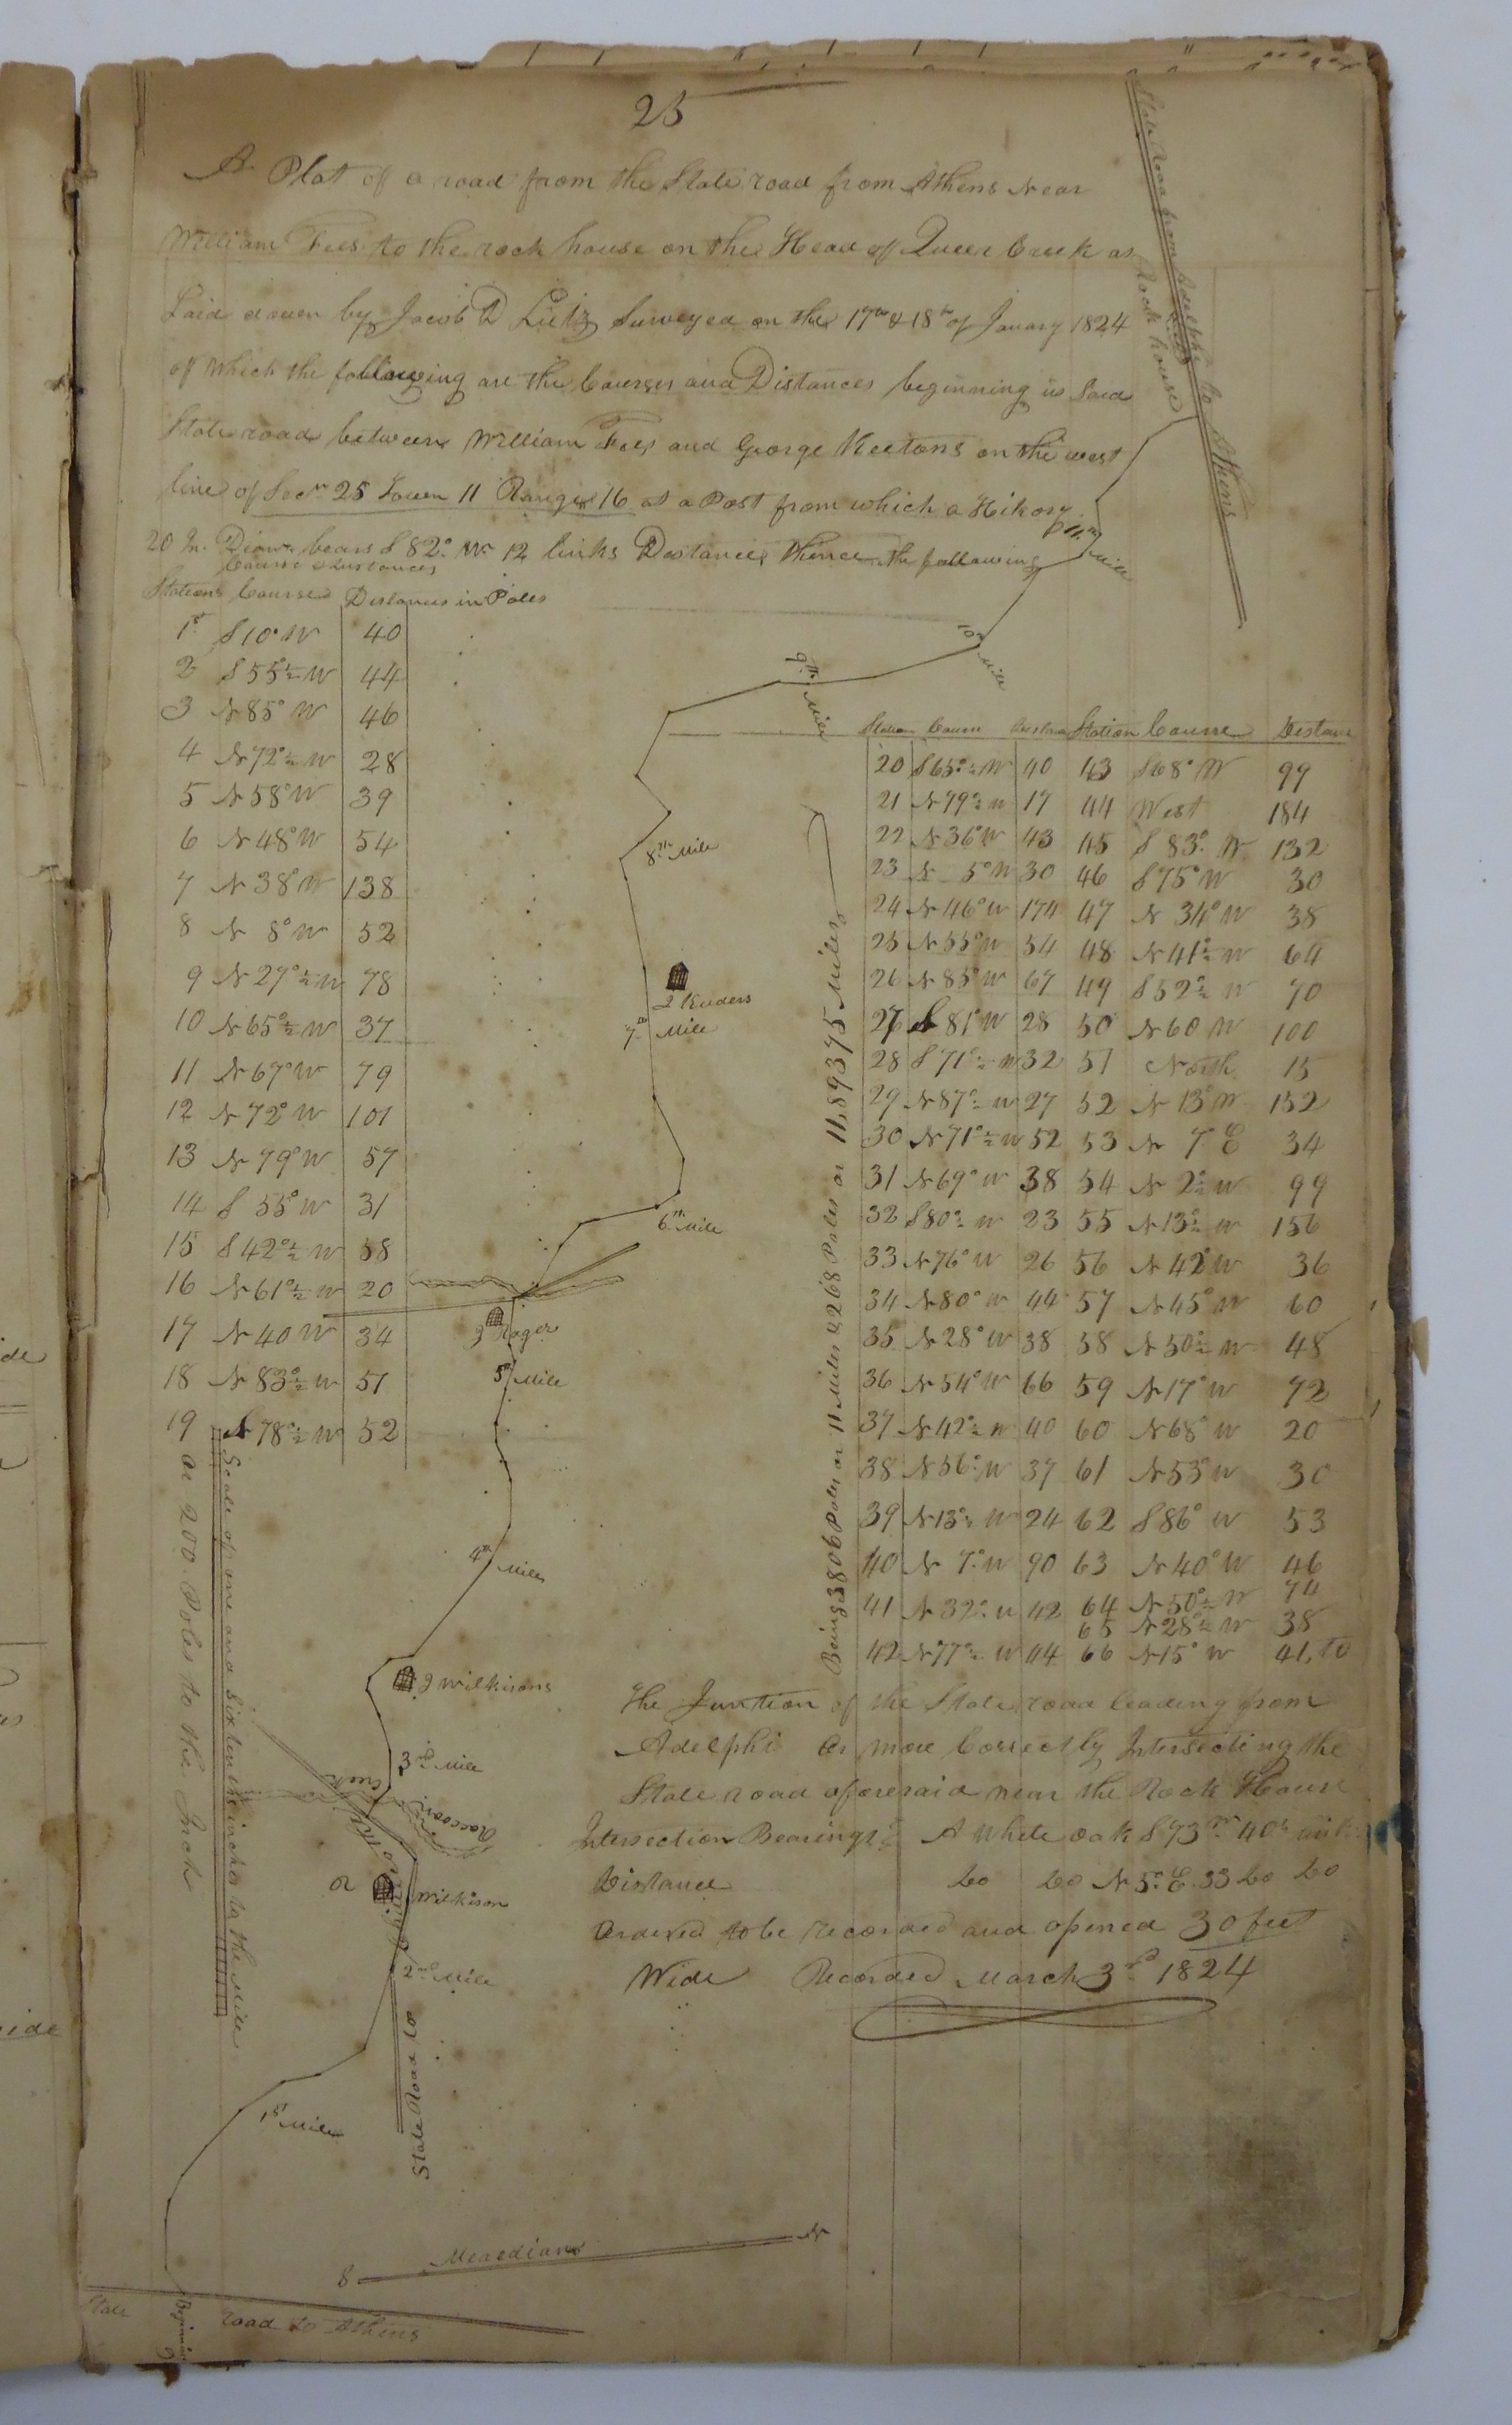 25
A Plat of a road from the State road from Athens Near
William Fees to the rock house on the Head of Queer Creek as
Laid down by Jacob D Lutz Surveyed on the 17th & 18th of Janary 1824
of Which the following are the Courses and Distances beginning in Said
State road between William Fees and George Keetons on the west
line of Secn 25 Town 11 Range 16 at a Post from which a Hikory
20 In. Diamr bears S 82° W 12 links Distance, Thence the following
Course & Distances
Stations Courses Distances in Poles
1st S 10° W 40
2 S 55°½ W 44
3 N 85° W 46
4 N 72°½ W 28
5 N 58° W 39
6 N 48° W 54
7 N 38° W 138
8 N 8° W 52
9 N 27°½ W 78
10 N 65°½ W 37
11 N 67° W 79
12 N 72° W 101
13 N 79° W 57
14 S 55° W 31
15 S 42°½ W 58
16 N 61°½ W 20
17 N 40 W 34
18 N 83°½ W 51
19 S 78°½ W 52
Scale of one and Sixtenths inches to the Mile
or 200 Poles to the Inch
Station Course Distance Station Course Distance
20 S 65°½ W 40 43 S 68° W 99
21 N 79°½ W 17 44 West 184
22 N 36° W 43 45 S 83° W 132
23 N 5° W 30 46 S 75° W 30
24 N 46° W 174 47 N 34° W 38
25 N 55° W 54 48 N 41°½ W 64
26 N 85° W 67 49 S 52°½ W 70
27 S 81° W 28 50 N 60 W 100
28 S 71°½ W 32 51 North 15
29 N 87°½ W 27 52 N 13° W 152
30 N 71°½ W 52 53 N 7° E 34
31 N 69° W 38 54 N 2°½ W 99
32 S 80°½ W 23 55 N 13°½ W 156
33 N 76° W 26 56 N 42° W 36
34 N 80° W 44 57 N 45° W 60
35 N 28° W 38 58 N 50°½ W 48
36 N 54° W 66 59 N 17° W 72
37 N 42°½ W 40 60 N 68° W 20
38 N 56° W 37 61 N 53° W 30
39 N 13°½ W 24 62 S 86° W 53
40 N 7° W 90 63 N 40° W 46
41 N 32° W 42 64 N 50°½ W 74
65 N 28°½ W 38
42 N 77°½ W 44 66 N 15° W 41, to
Being 3806 Poles or 11 Miles & 268 Poles or 11,89375 Miles
The Juntion of the State road leading from
Adelphi Or more Correctly Intersecting the
State road aforesaid near the Rock House
Intersection Bearings A White oak S 73 W 40
Distance Do Do N 5° E 33 Do Do
Ordered to be recorded and opened 30 feet
Wide Recorded March 3d 1824
State Road from Adelphi to Athens
Rock house
11th Mile
10th Mile
9th Mile
8th Mile
Kuders
7th Mile
6th Mile
5th Mile
4th Mile
J Wilkisons
3rd Mile
Raccoon
Creek
Wilkison
2nd Mile
State Road to
1st Mile
S Meredian N
State road to Athens
Beginning